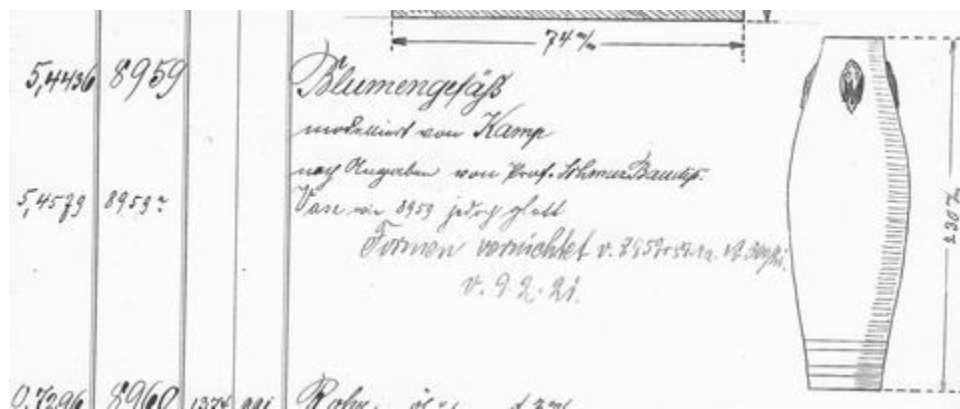 74 m/m
5,4436 8959 Blumengefäß
modelliert von Kamp
nach Angaben von Prof.
5,4579 8959 Vase wie 8959 jedoch glatt
Formen vernichtet v.
v. 9.2.21.
230 m/m
0,7296 8960 1374